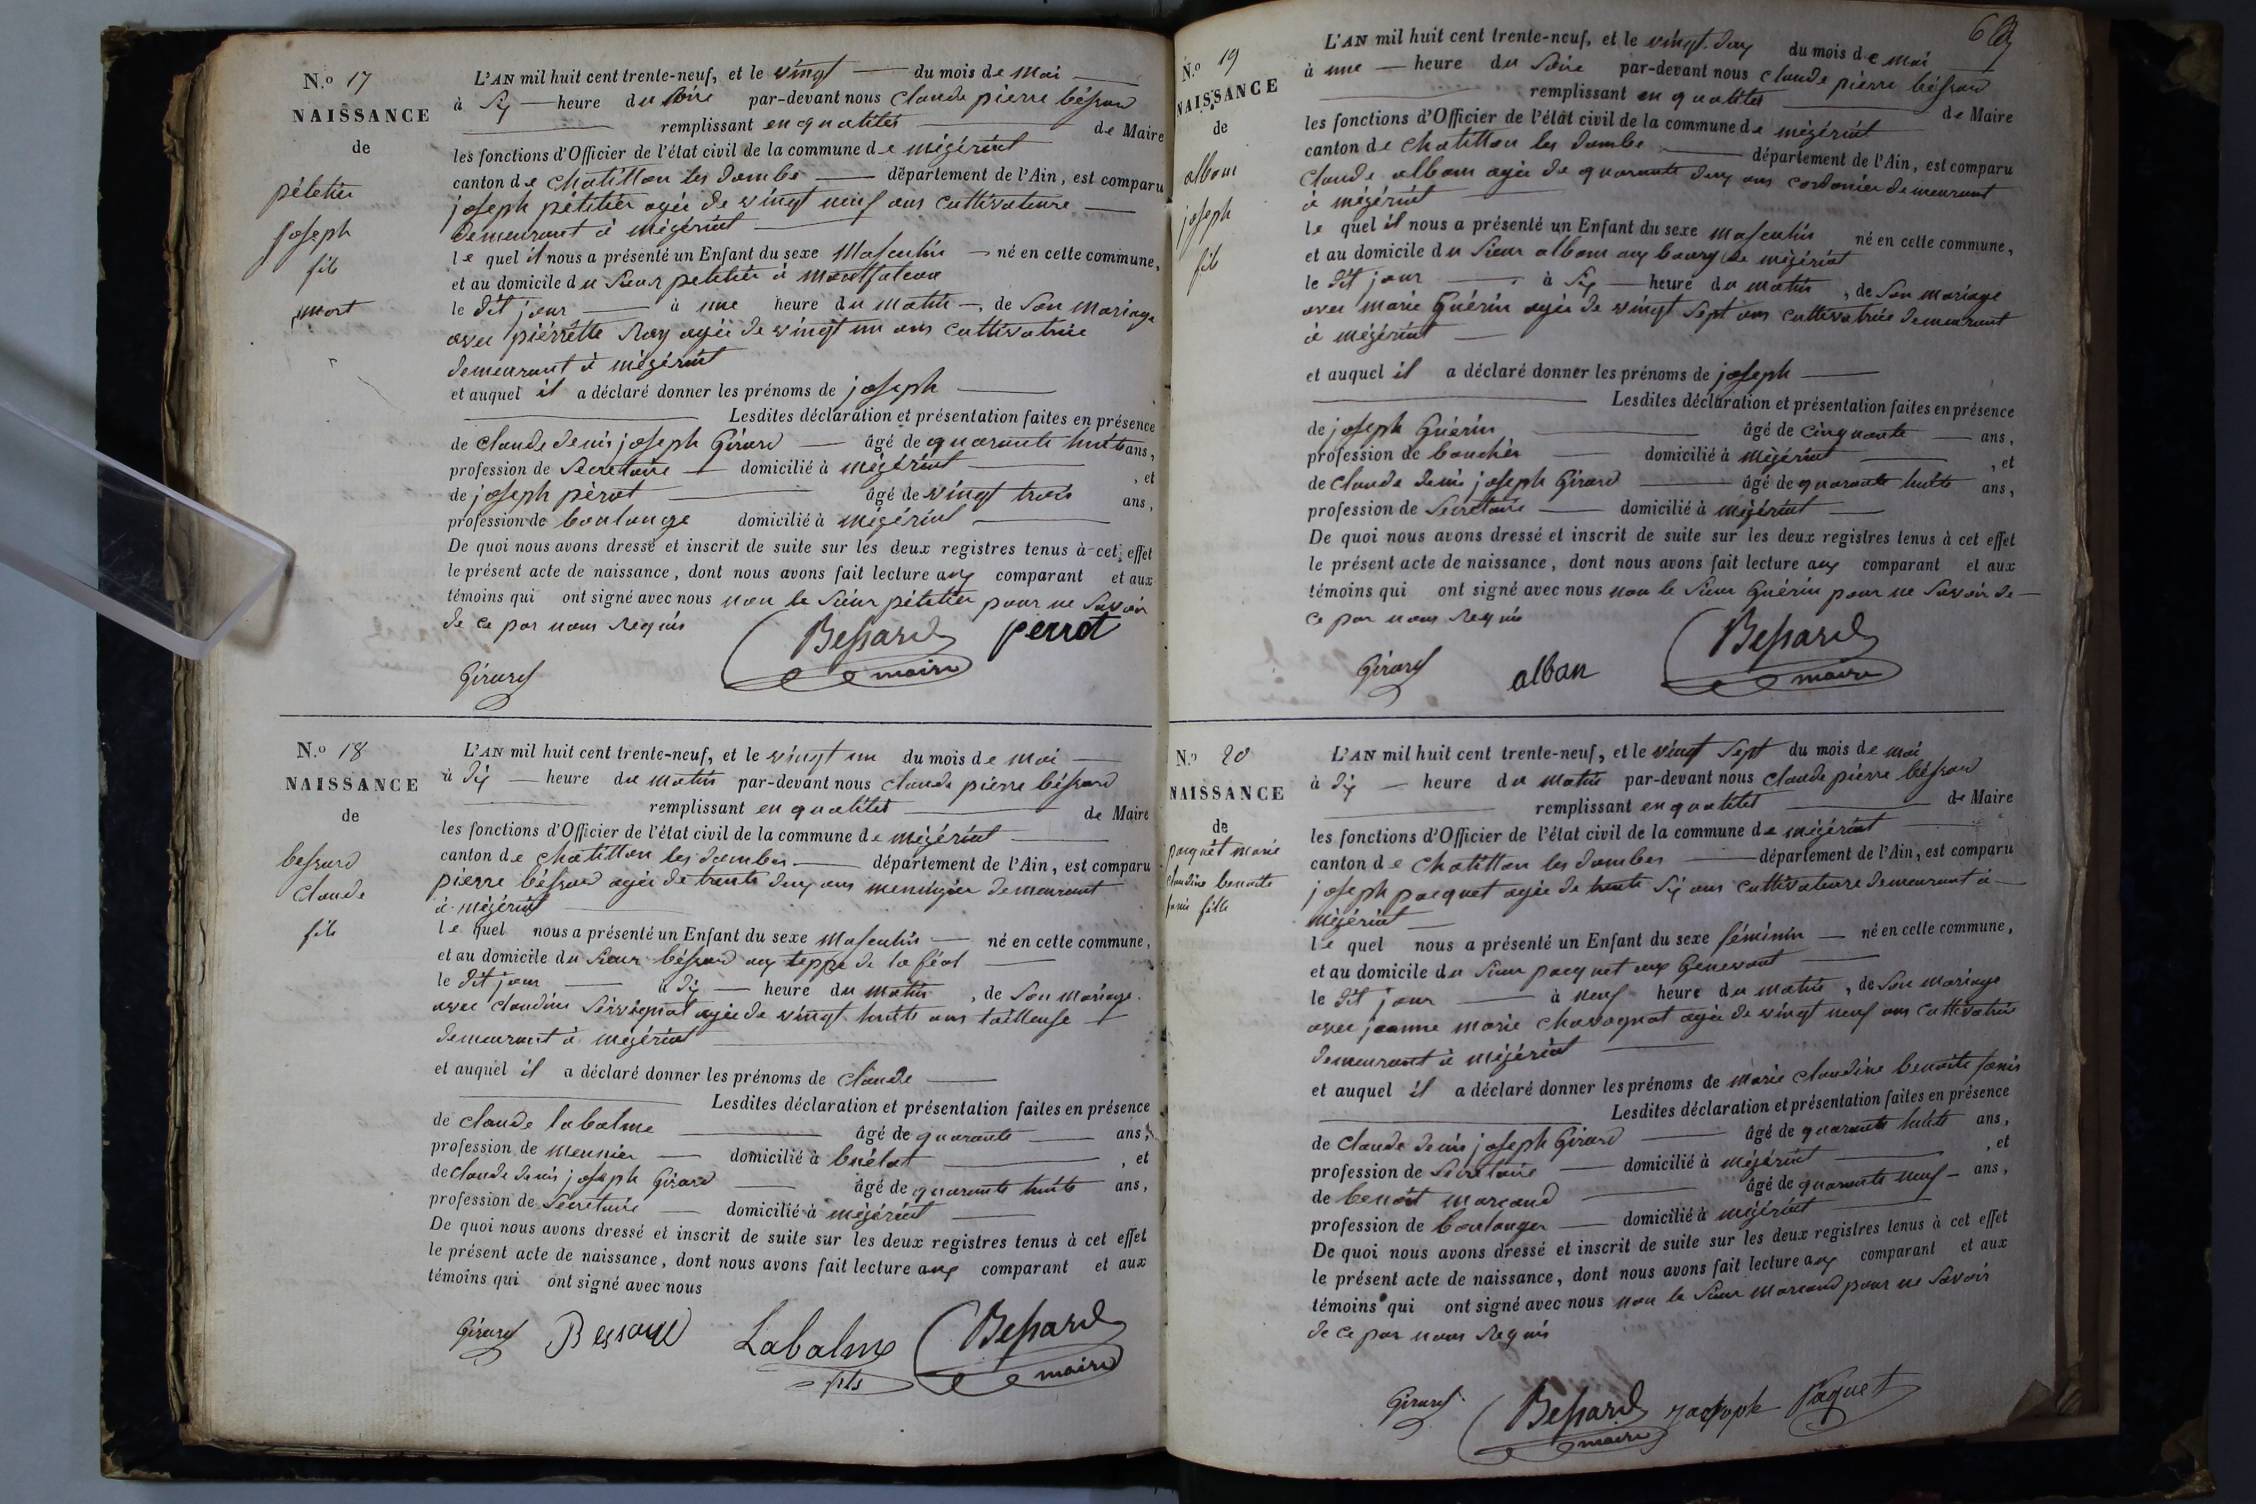 N.o 17
NAISSANCE
de
pètetier
joseph
fils
mort
L'AN mil huit cent trente-neuf, et le vingt du mois de mai
à Six heure du soire par-devant nous claude pierre béssard
remplissant en qualités de Maire
les fonctions d'Officier de l'état civil de la commune de mézériat
canton de chatillon les dombe département de l'Ain, est comparu
joseph pètitier agée de vingt neuf ans cultivateure
demeurant à mézériat
le quel il nous a présenté un Enfant du sexe Masculin né en cette commune,
et au domicile du Sieur petitier à montfalcon
le dit jour à une heure du matin, de Son mariage
avec pièrrette Ray agée de vingt un ans cultivatrice
demeurant à mézériat
et auquel il a déclaré donner les prénoms de joseph
Lesdites déclaration et présentation faites en présence
de claude denis joseph Girard âgé de quarante huit ans,
profession de Secretaire domicilié à mézériat, et
de joseph pèrot âgé de vingt trois ans,
profession de boulange domicilié à mézériat
De quoi nous avons dressé et inscrit de suite sur les deux registres tenus à cet effet
le présent acte de naissance, dont nous avons fait lecture aux comparant et aux
témoins qui ont signé avec nous non le Sieur pètitier pour ne Savoir
de ce par nous Requis
Bessard perrot
maire
Girard
N.o 18
NAISSANCE
de
bessard
claude
fils
L'AN mil huit cent trente-neuf, et le vingt un du mois de mai
à dix heure du matin par-devant nous claude pierre béssard
remplissant en qualités de Maire
les fonctions d'Officier de l'état civil de la commune de mézériat
canton de chatillon les dombes département de l'Ain, est comparu
pierre béssard agée de trente deux ans menuizier demeurant
à mézériat
le quel nous a présenté un Enfant du sexe Masculin né en cette commune,
et au domicile du Sieur béssard aux teppe de la féol
le dit jour à dix heure du matin, de Son mariage
avec claudine Sérvignat agée de vingt huite ans tailleuse
demeurant à mézériat
et auquel il a déclaré donner les prénoms de claude
Lesdites déclaration et présentation faites en présence
de claude labalme âgé de quarante ans,
profession de meunier domicilié à buélat, et
de claude denis joseph Girard âgé de quarante huite ans,
profession de Sécretaire domicilié à mézériat
De quoi nous avons dressé et inscrit de suite sur les deux registres tenus à cet effet
le présent acte de naissance, dont nous avons fait lecture aux comparant et aux
témoins qui ont signé avec nous
Girard Bessard Labalme Bessard
fils maire
N.o 19
NAISSANCE
de
albam
joseph
fils
L'AN mil huit cent trente-neuf, et le vingt deux du mois de mai
à une heure du Soire par-devant nous claude pierre béssard
remplissant en qualités de Maire
les fonctions d'Officier de l'état civil de la commune de mézériat
canton de chatillon les dombe département de l'Ain, est comparu
claude albam agée de quarante deux ans cordonier demeurant
à mézériat
le quel il nous a présenté un Enfant du sexe masculin né en cette commune,
et au domicile du Sieur albam aux bourg de mézériat
le dit jour à Six heure du matin, de Son mariage
avec marie Guérin agée de vingt Sept ans cultivatrice demeurant
à mézériat
et auquel il a déclaré donner les prénoms de joseph
Lesdites déclaration et présentation faites en présence
de joseph Guérin âgé de cinquante ans,
profession de bouchér domicilié à mézériat, et
de claude denis joseph Girard âgé de quarante huite ans,
profession de Secretaire domicilié à mézériat
De quoi nous avons dressé et inscrit de suite sur les deux registres tenus à cet effet
le présent acte de naissance, dont nous avons fait lecture aux comparant et aux
témoins qui ont signé avec nous non le Sieur Guérin pour ne Savoir de
ce par nous Requis
Girard alban Bessard
maire
N.o 20
NAISSANCE
de
pacquet marie
claudine benoite
fanie fille
L'AN mil huit cent trente-neuf, et le vingt Sept du mois de mai
à dix heure du matin par-devant nous claude pierre béssard
remplissant en qualités de Maire
les fonctions d'Officier de l'état civil de la commune de mézériat
canton de chatillon les dombes département de l'Ain, est comparu
joseph pacquet agée de trente Six ans cultivateure demeurant à
mézériat
le quel nous a présenté un Enfant du sexe féminin né en cette commune,
et au domicile du Sieur pacquet aux Genevant
le dit jour à neuf heure du matin, de Son mariage
avec jeanne marie chavagnat agée de vingt neuf ans cultivatrice
demeurant à mézériat
et auquel il a déclaré donner les prénoms de marie claudine benoite fanie
Lesdites déclaration et présentation faites en présence
de claude denis joseph Girard âgé de quarante huite ans,
profession de Secretaire domicilié à mézériat, et
de benoit marcand âgé de quarante neuf ans,
profession de boulanger domicilié à mézériat
De quoi nous avons dressé et inscrit de suite sur les deux registres tenus à cet effet
le présent acte de naissance, dont nous avons fait lecture aux comparant et aux
témoins qui ont signé avec nous non le Sieur marcand pour ne Savoir
de ce par nous Requis
Girard Bessard Paquet
maire